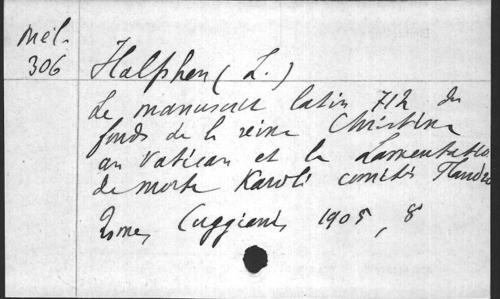 Mél.
306
Halphen (L.)
Le manuscrit latin 712 du
fonds de la reine Christine
au Vatican et la Lamentatio
de morte Karoli comitis Flandr
Rome, Cuggiani, 1905, 8